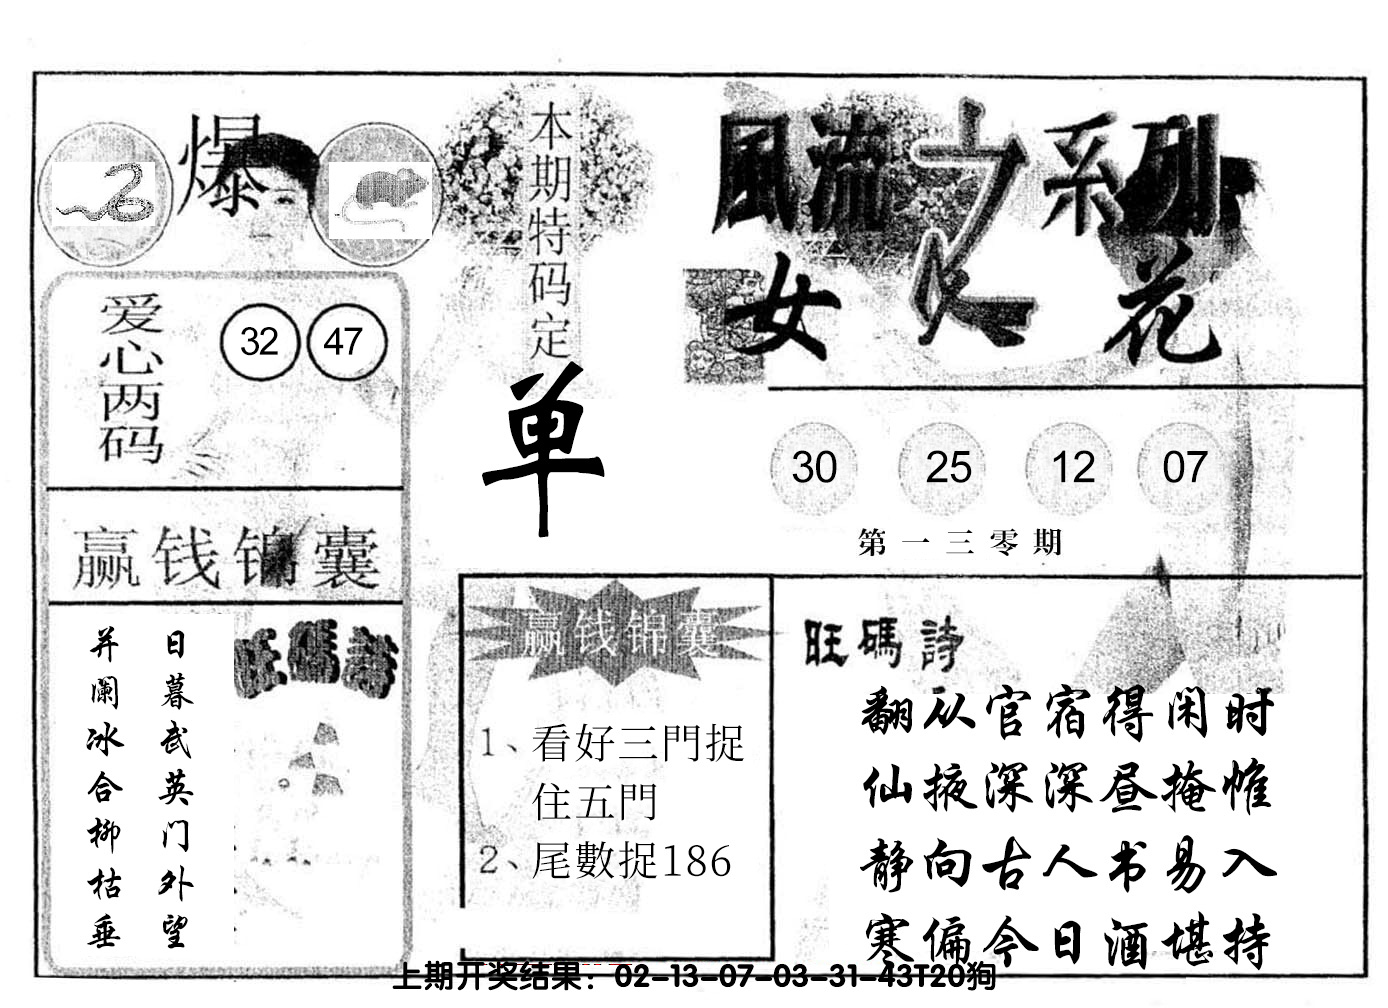 爆
爱心两码
32 47
赢钱锦囊
日暮武英门外望
并阑冰合柳枯垂
旺碼詩
本期特码定
单
赢钱锦囊
1、看好三門捉
住五門
2、尾數捉186
風流之系列
女人花
30 25 12 07
第一三零期
旺碼詩
翻从官宿得闲时
仙掖深深昼掩帷
静向古人书易入
寒偏今日酒堪持
上期开奖结果：02-13-07-03-31-43T20狗